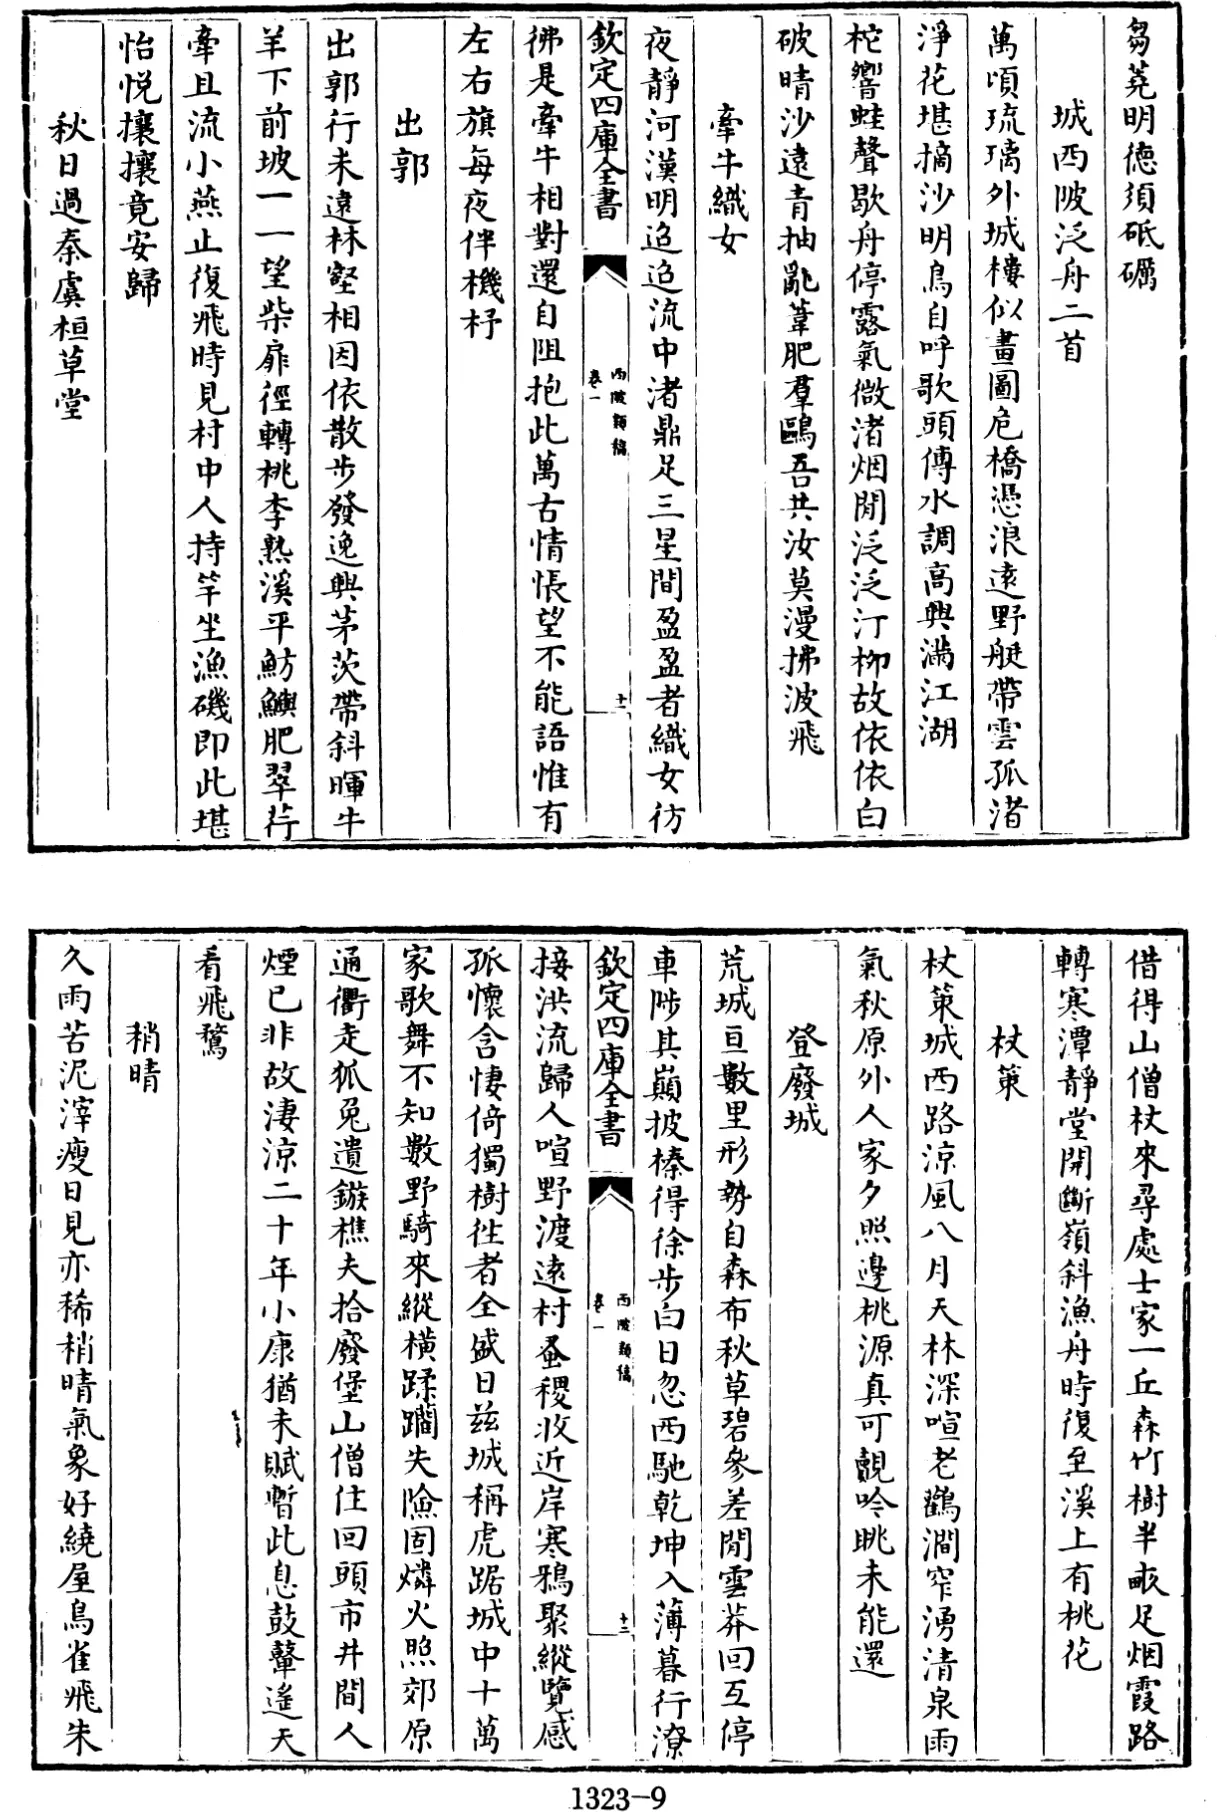 芻蕘明德須砥礪
城西陂泛舟二首
萬頃琉璃外城樓似畫圖危橋憑浪遠野艇帶雲孤渚
淨花堪摘沙明鳥自呼歌頭傳水調高興滿江湖
柁響蛙聲歇舟停露氣微渚烟閒泛泛汀柳故依依白
破晴沙遠青抽亂葦肥羣鷗吾共汝莫漫拂波飛
牽牛織女
夜靜河漢明迢迢流中渚鼎足三星間盈盈者織女彷
欽定四庫全書
西陂類稿
卷一
十一
彿是牽牛相對還自阻抱此萬古情悵望不能語惟有
左右旗每夜伴機杼
出郭
出郭行未遠林壑相因依散步發逸興茅茨帶斜暉牛
羊下前坡一一望柴扉徑轉桃李熟溪平魴鱮肥翠荇
牽且流小燕止復飛時見村中人持竿坐漁磯即此堪
怡悅攘攘竟安歸
秋日過秦虞桓草堂
借得山僧杖來尋處士家一丘森竹樹半畝足烟霞路
轉寒潭靜堂開斷嶺斜漁舟時復至溪上有桃花
杖策
杖策城西路涼風八月天林深喧老鸛澗窄湧清泉雨
氣秋原外人家夕照邊桃源真可覿吟眺未能還
登廢城
荒城亘數里形勢自森布秋草碧參差閒雲莽回互停
車陟其巔披榛得徐步白日忽西馳乾坤入薄暮行潦
欽定四庫全書
西陂類稿
卷一
十二
接洪流歸人喧野渡遠村蚕稷收近岸寒鴉聚縱覽感
孤懷含悽倚獨樹徃者全盛日兹城稱虎踞城中十萬
家歌舞不知數野騎來縱橫蹂躪失險固燐火照郊原
通衢走狐兔遺鏃樵夫拾廢堡山僧住回頭市井間人
煙已非故淒涼二十年小康猶未賦暫此息鼓鼙遙天
看飛鶩
稍晴
久雨苦泥滓瘦日見亦稀稍晴氣象好繞屋鳥雀飛朱
1323-9